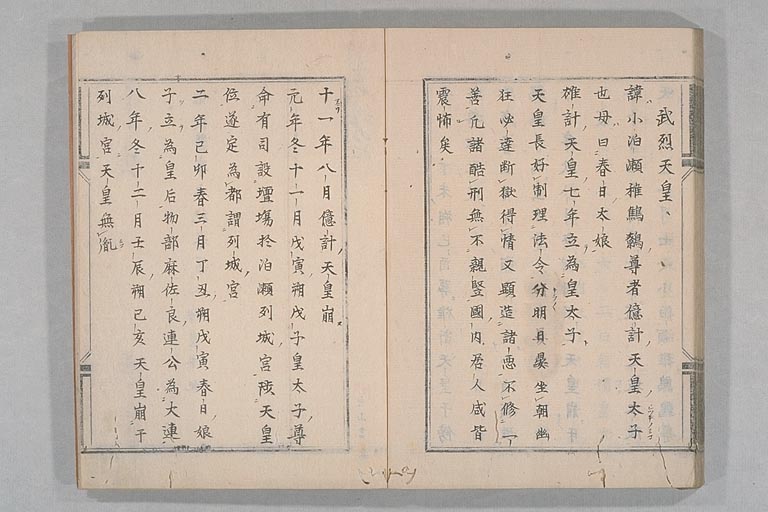 武烈天皇
諱小泊瀬稚鷦鷯尊者億計天皇太子
也母曰春日大娘
雄計天皇七年立為皇太子
天皇長好制理法令分明日晏坐朝幽
枉必達斷獄得情又顯造諸悪不修一
善凢諸酷刑無不親竪國内居人咸皆
震怖矣
十一年八月億計天皇崩
元年冬十一月戊寅朔戊子皇太子尊
命有司設壇場於泊瀬列城宮陟天皇
位遂定為都謂列城宮
二年己卯春三月丁丑朔戊寅春日娘
子立為皇后物部麻佐良連公為大連
八年冬十二月壬辰朔己亥天皇崩于
列城宮天皇無胤